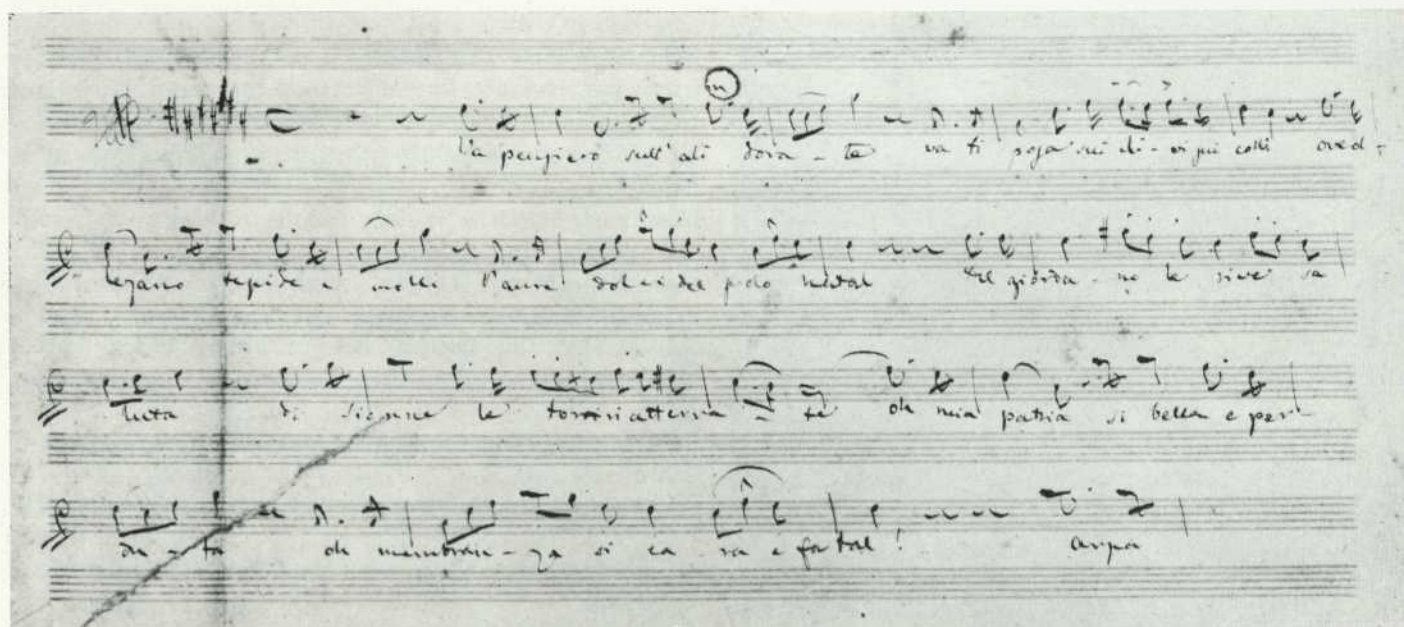 Va pensiero sull'ali dora - te va ti posa sui cli - vi sui colli ove ol -
ezzano tepide e molli l'aure dolci del suolo natal Del giorda - no le rive sa
luta di Sionne le torri atterra - te oh mia patria si bella e per -
du - ta oh membran - za si ca - ra e fatal! arpa